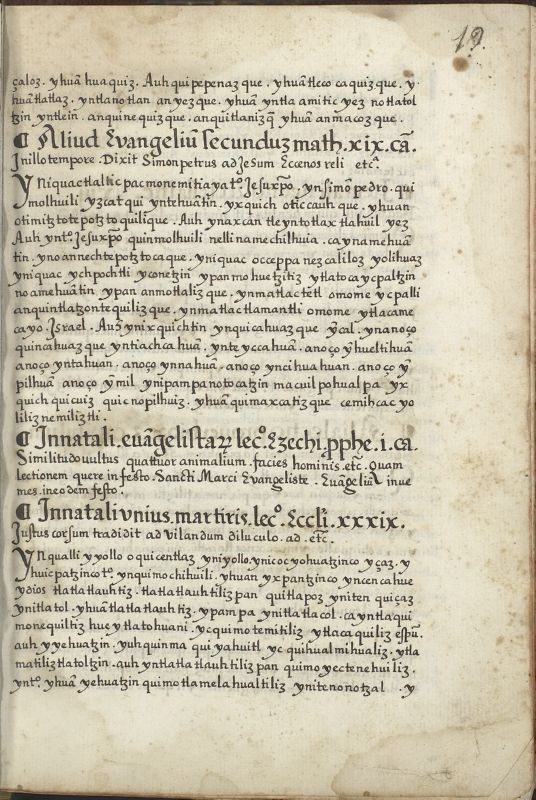 19.
çaloz . yhuā huaquiz . Auh quipepenaz que . yhuā tleco caquiz que . y
huā tlatlaz . yntlanotlan anyez que . yhuā yntla amitic yez notlatol
tzin yntlein . anquinequiz que . anquitlanizq̄ yhuā anmacoz que .
¶ Aliud Evangeliū secunduz math . xix . ca.
Inillo tempore . Dixit Simon petrus ad Jesum Ecce nos reli etcᵃ.
Yniquac tlalticpac monemitiaya tº. Jesu xpō . yn simō pedro . qui
molhuili yzcatqui yntehuātin . yxquich oticcauh que . yhuan
otimitztotepotztoquilique . Auh ynaxcan tleyntotlaxtlahuil yez
Auh yntº. Jesu xpō quinmolhuili nelli namechilhuia . caynamehuā
tin . yno annechtepotztocaque . yniquac occeppa nezcaliloz yolihuaz
yniquac ychpochtli yconetzin ypan mohuetzitiz ytlatocaycpaltzin
no amehuātin ypan anmotlaliz que . ynmatlactetl omome ycpalli
anquintlatzontequiliz que . ynmatlactlamantli omome ytlacame
cayo . Israel . Auh ynixquichtin ynquicahuaz que ȳcal . ynanoço
quincahuaz que yntiachcahuā . ynteyccahuā . anoço ȳhueltihuā
anoço yntahuan . anoço ynnahuā . anoço yncihuahuan . anoço ȳ
pilhuā anoço ȳmil ynipampa notocatzin macuilpohualpa yx
quich quicuiz quicnopilhuiz . yhuā quimaxcatiz que cemihcac yo
liliz nemiliztli .
¶ In natali . evāgelistaꝝ lecº. Ezechi . pphe . i . ca.
Similitudo vultus quattuor animalium . facies hominis . etc̄. Quam
lectionem quere in festo . Sancti Marci Evangeliste . Euāgeliū inue
mes . in eodem festo .
¶ In natali vnius . martiris . lecº. Eccli . xxxix .
Justus cor sum tradidit ad vilandum diluculo . ad . etc̄.
Yn qualli yyollo oquicentlaz yniyollo . ynicoc yohuatzinco yçaz . y
huicpatzinco tº. ynquimochihuili . yhuan yxpantzinco yncencahue
ydios tlatlatlauhtiz . tlatlatlauhtilizpan quitlapoz yniten quiçaz
ynitlatol . yhuā tlatlatlauhtiz . ypampa ynitlatlacol . cayntlaqui
monequiltiz huey tlatohuani . yc quimotemitiliz ytlacaquiliz espū .
auh yyehuatzin . yuhquinma quiyahuitl yc quihualmihualiz . ytla
matiliztlatoltzin . auh yntlatlatlauhtilizpan quimoyectenehuiliz .
yntº. yhuā yehuatzin quimotlamelahualtiliz yniteno notzal . y